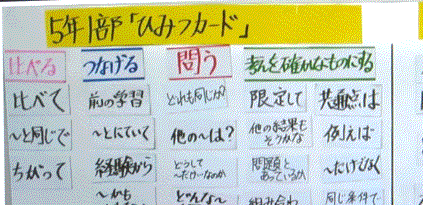 5年1部「ひみつカード」
比べる つなげる 問う 考えを確かなものにする
比べて 前の学習 どれも同じか? 限定して 共通点は
〜と同じで 〜とにていて 他の〜は? 他の結果も 例えば
ちがって 経験から どうして 問題と 〜だけでなく
〜たのか あっているか
〜から どんな〜 組み合わ 同じ条件で